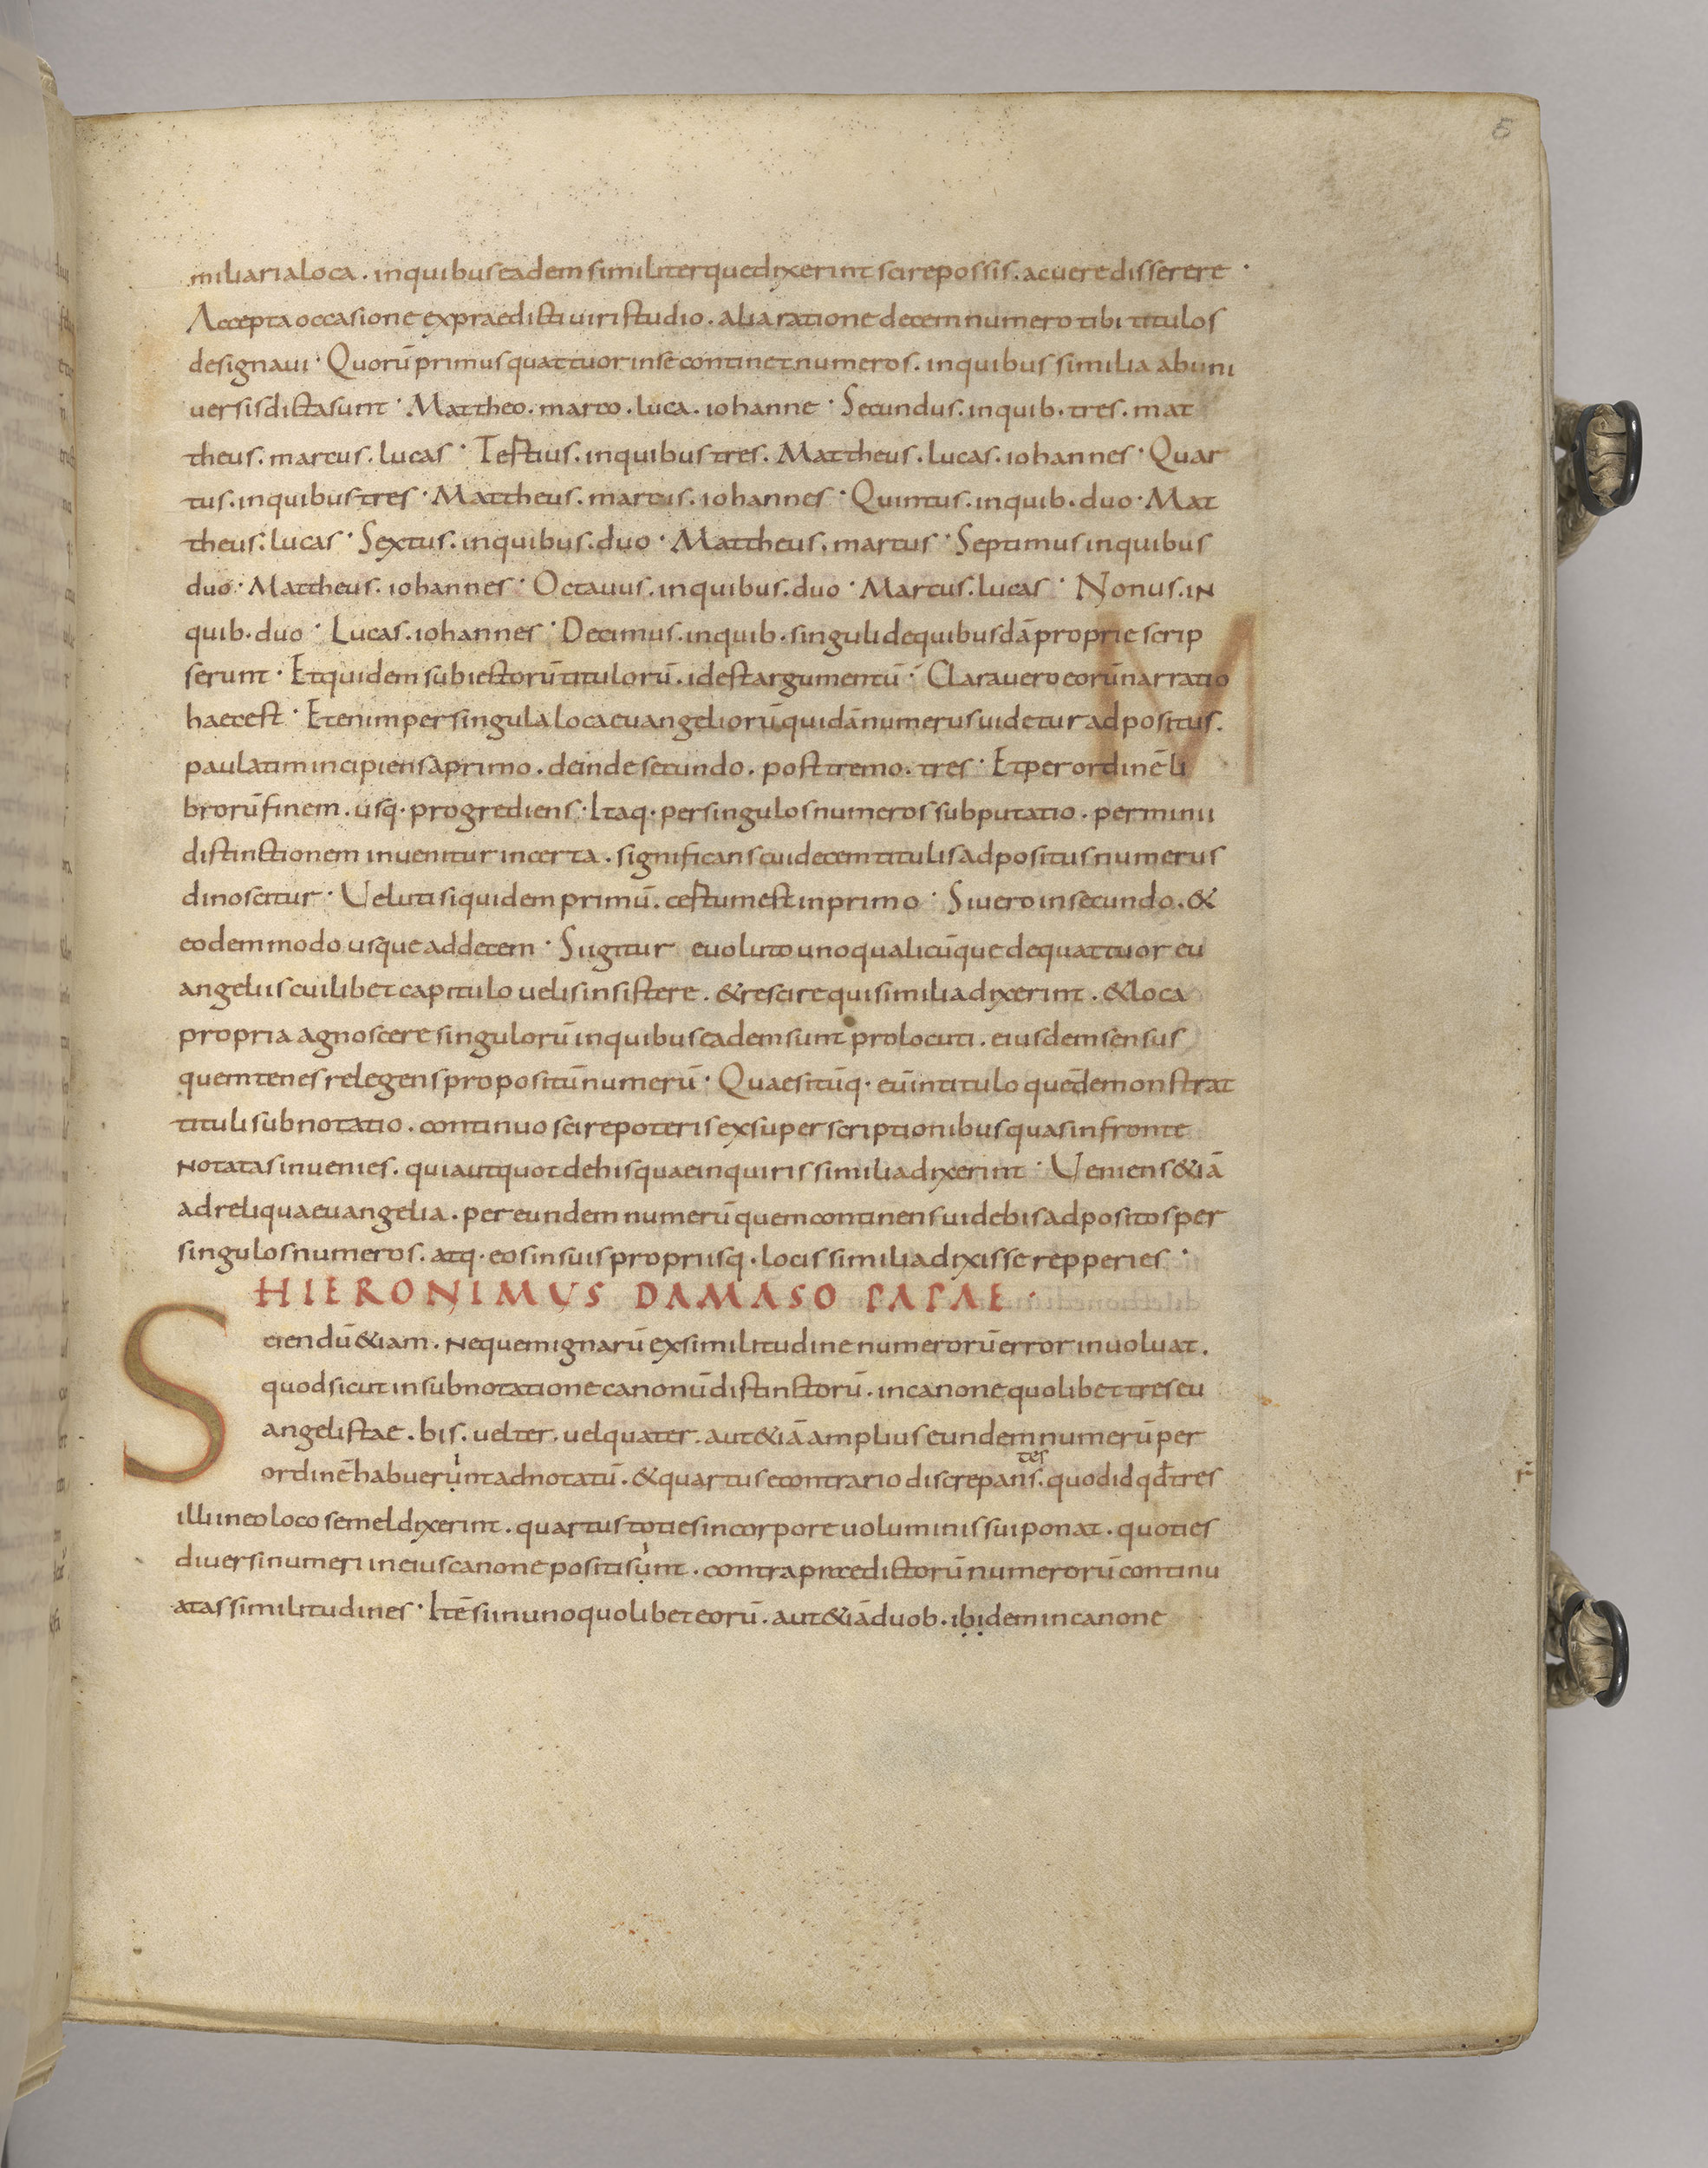 5
miliaria loca . in quibus eadem similiterque dixerint scire possis . ac uere disserere ·
Accepta occasione ex praedicti uiri studio . alia ratione decem numero tibi titulos
designaui · Quorū primus quattuor in se continet numeros . in quibus similia ab uni
uersis dicta sunt · Mattheo . marco . luca . iohanne · Secundus . in quib · tres . mat
theus . marcus . lucas · Testius . in quibus tres . Mattheus . lucas . iohannes · Quar
tus . in quibus tres · Mattheus . marcus . iohannes · Quintus . in quib · duo · Mat
theus . lucas · Sextus . in quibus . duo · Mattheus , marcus · Septimus in quibus
duo · Mattheus . iohannes · Octauus . in quibus . duo · Marcus . lucas · Nonus . in
quib · duo · Lucas . iohannes · Decimus . in quib · singuli de quibusdā proprie scrip
serunt · Et quidem subiectorū titulorū . id est argumentū · Clara uero eorū narratio
haec est · Etenim per singula loca euangeliorū quidā numerus uidetur adpositus .
paulatim incipiens a primo . deinde secundo . post tremo . tres · Et per ordinē li
brorū finem . usq · progrediens · Itaq · per singulos numeros subputatio . per minii
distinctionem inuenitur incerta . significans cui decem titulis adpositus numerus
dinoscitur · Ueluti siquidem primū . cestum est in primo · Si uero in secundo . &
eodem modo usque ad decem · Si igitur euoluto uno qualicūque de quattuor eu
angeliis cuilibet capitulo uelis insistere . & rescire qui similia dixerint . & loca
propria agnoscere singulorū in quibus eadem sunt prolocuti . eiusdem sensus
quem tenes relegens propositū numerū · Quaesitūq · eū in titulo quē demonstrat
tituli subnotatio . continuo scire poteris ex superscriptionibus quas in fronte
notatas inuenies . qui aut quot de his quae inquiris similia dixerint · Ueniens &iā
ad reliqua euangelia . per eundem numerū quem continens uidebis adpositos per
singulos numeros . atq · eos in suis propriisq · locis similia dixisse repperies ·
HIERONIMUS DAMASO PAPAE ·
Sciendū &iam . ne quem ignarū ex similitudine numerorū error inuoluat .
quod sicut in subnotatione canonū distinctorū . in canone quolibet tres eu
angelistae . bis . uel ter . uel quater . aut &iā amplius eundem numerū per
ordinē habuerunt adnotatū . & quartus e contrario discrepans tes . quod id qđ tres
illi in eo loco semel dixerint . quartus toties in corpore uoluminis sui ponat . quoties
diuersi numeri in eius canone positi sunt . contra praedictorū numerorū continu
atas similitudines · Itē si in uno quolibet eorū . aut &iā duob . ibidem in canone